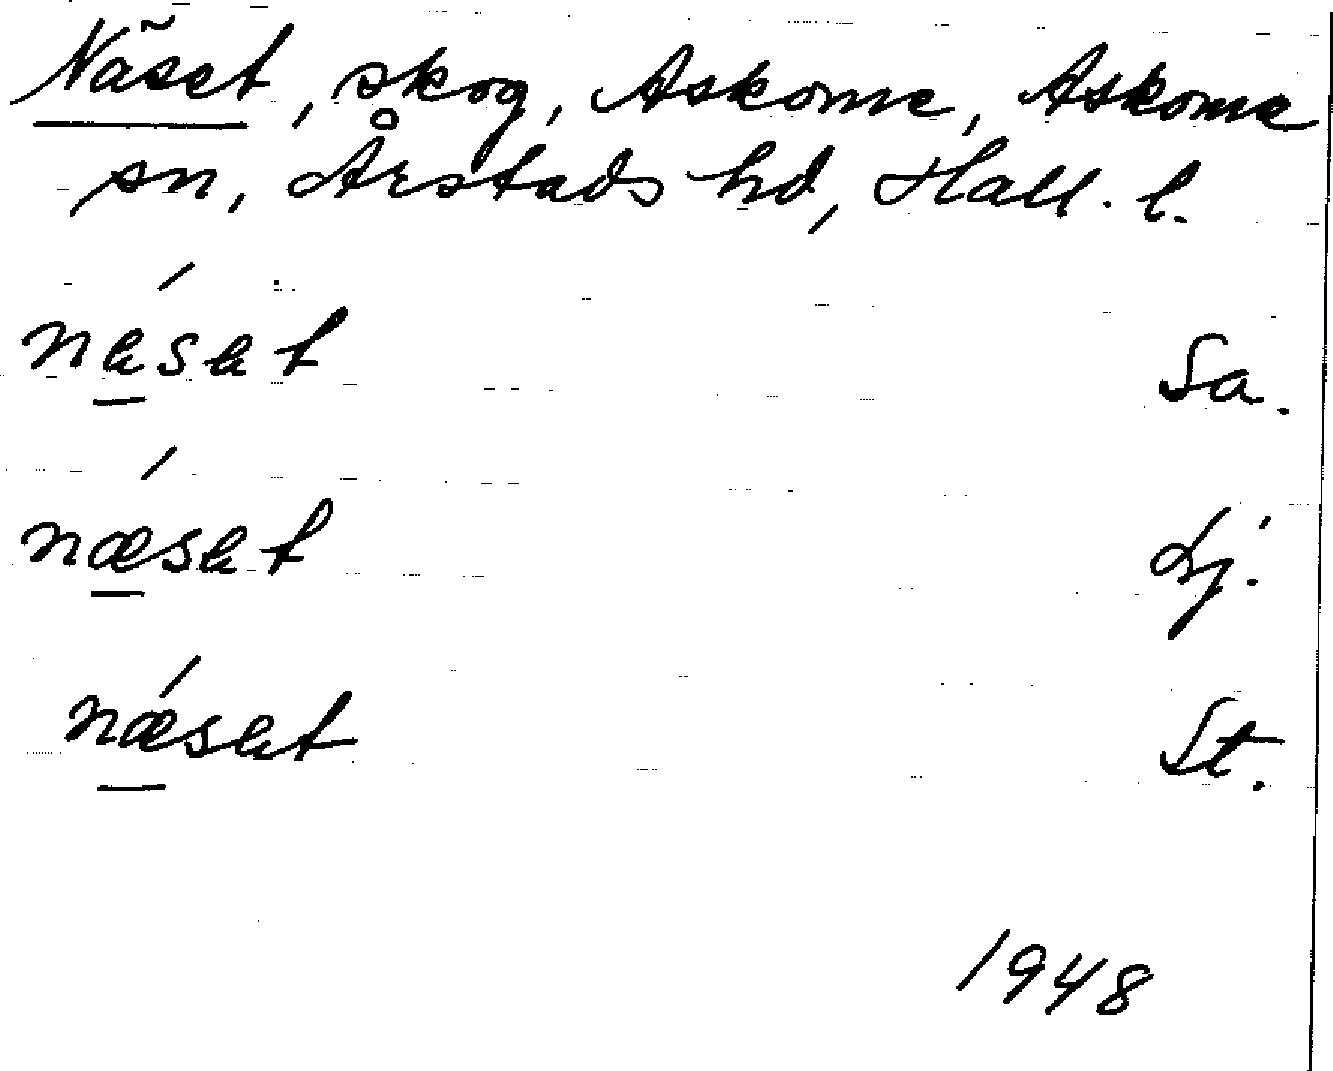 Näset, skog, Askome, Askome
sn, Årstads hd, Hall. l.
näsat Sa.
næsat Lj.
næsat St.
1948